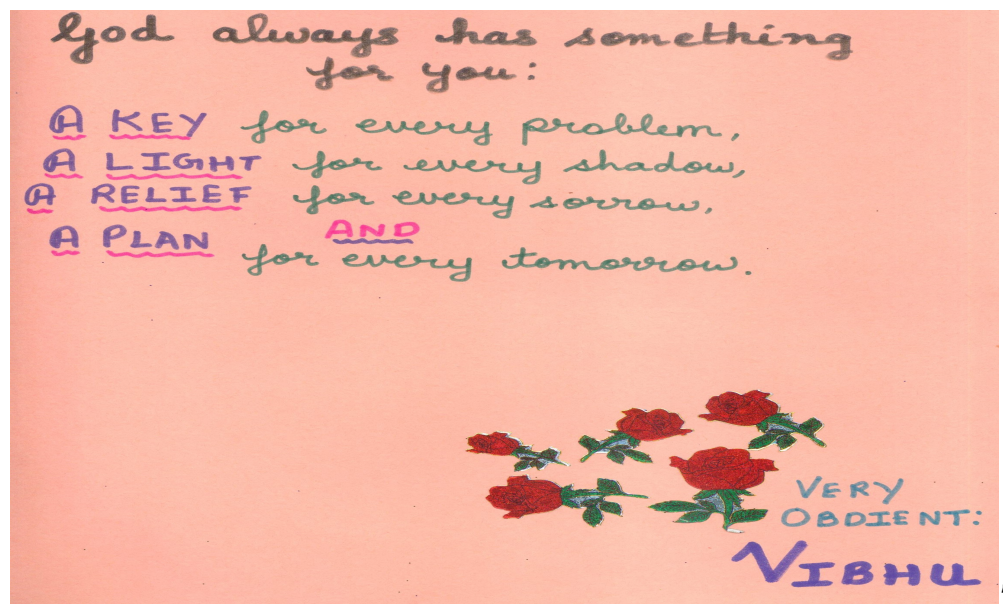 God always has something
for you:
A KEY for every problem,
A LIGHT for every shadow,
A RELIEF for every sorrow,
AND
A PLAN for every tomorrow.
VERY
OBDIENT:
VIBHU